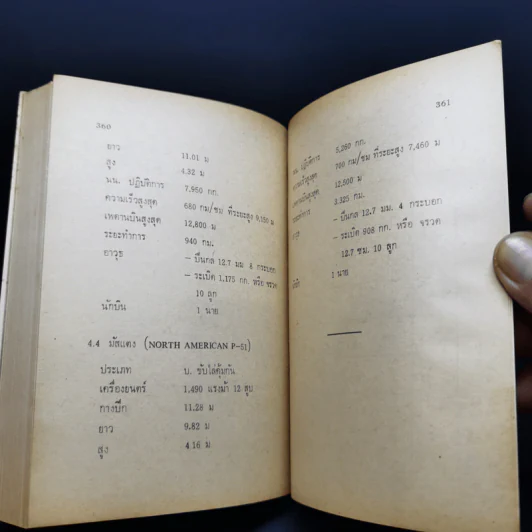 360
ยาว 11.01 ม
สูง 4.32 ม
นน. ปฏิบัติการ 7,950 กก.
ความเร็วสูงสุด 680 กม/ชม ที่ระยะสูง 9,150 ม
เพดานบินสูงสุด 12,800 ม
ระยะทำการ 940 กม.
อาวุธ – ปืนกล 12.7 มม 8 กระบอก
– ระเบิด 1,175 กก. หรือ จรวด
10 ลูก
นักบิน 1 นาย
4.4 มัสแตง (NORTH AMERICAN P-51)
ประเภท บ. ขับไล่คุ้มกัน
เครื่องยนตร์ 1,490 แรงม้า 12 สูบ
กางปีก 11.28 ม
ยาว 9.82 ม
สูง 4.16 ม
361
นน. ปฏิบัติการ 5,260 กก.
700 กม/ชม ที่ระยะสูง 7,460 ม
12,500 ม
3,325 กม.
– ปืนกล 12.7 มม. 4 กระบอก
– ระเบิด 908 กก. หรือ จรวด
12.7 ซม. 10 ลูก
1 นาย